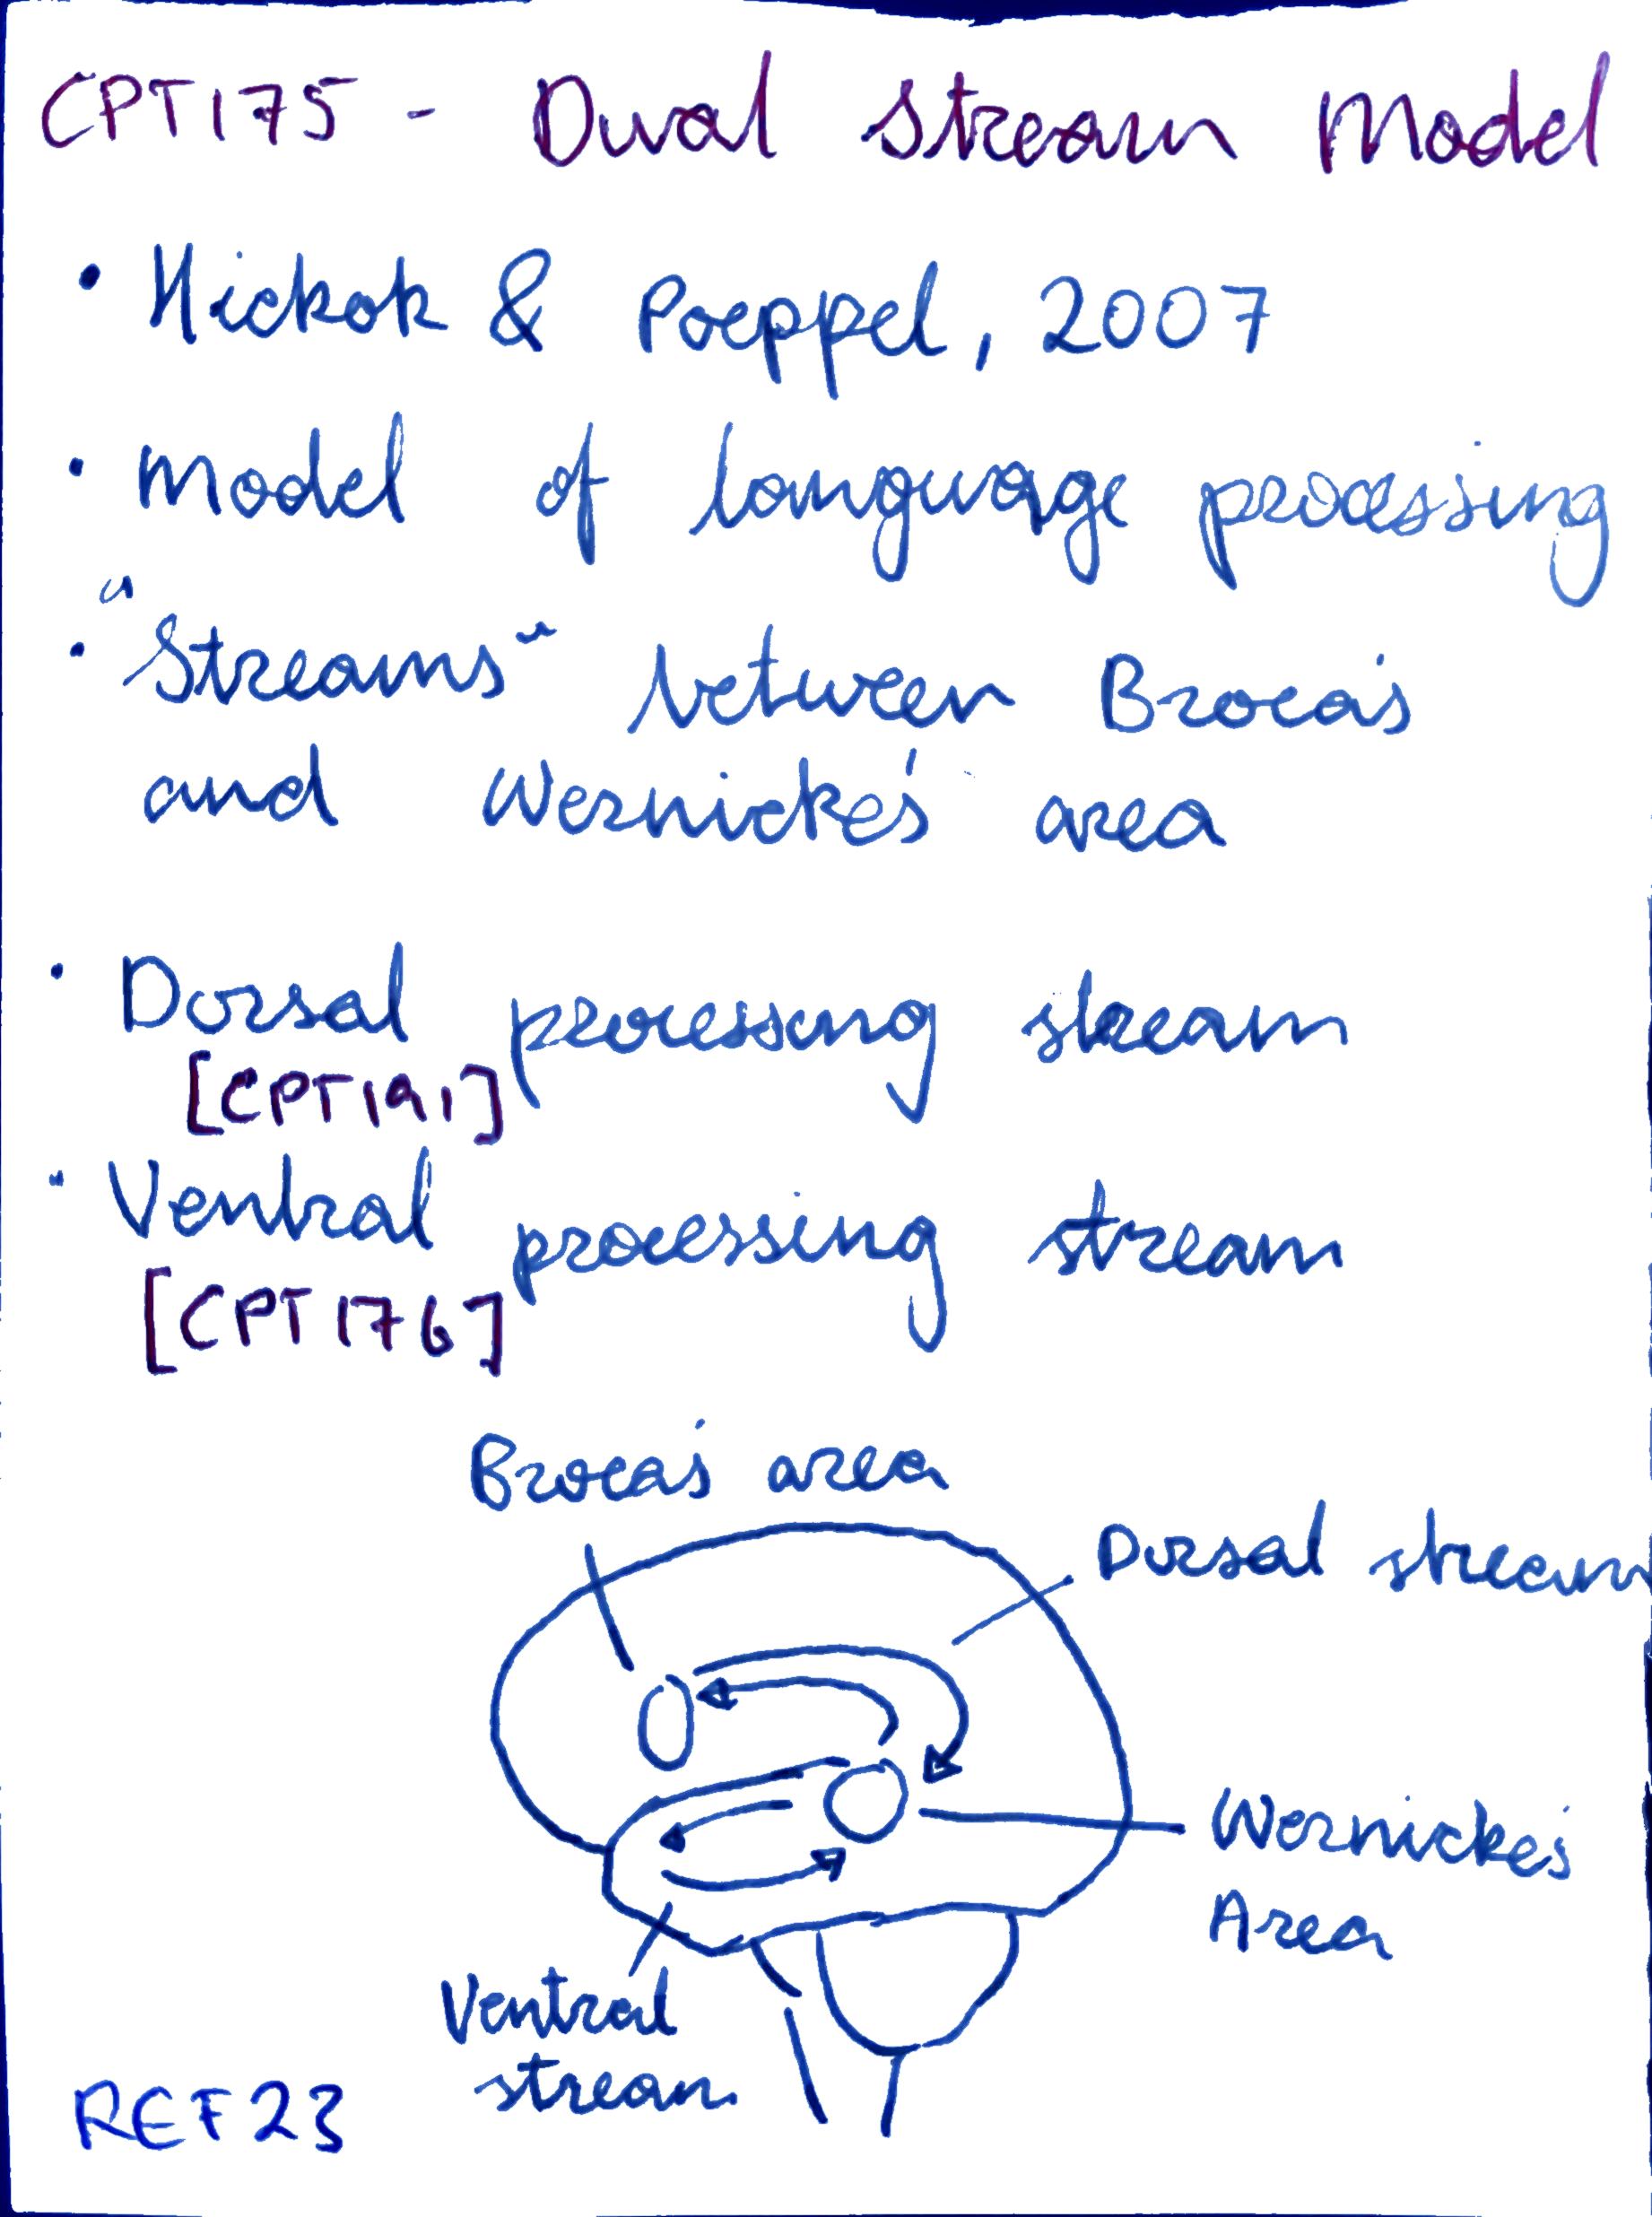 CPT175 - Dual Stream Model
• Hickok & Poeppel, 2007
• Model of language processing
• "Streams" between Broca's
and Wernicke's area
• Dorsal processing stream
[CPT191]
• Ventral processing stream
[CPT176]
Broca's area
Dorsal stream
Wernicke's
Area
Ventral
stream
REF23